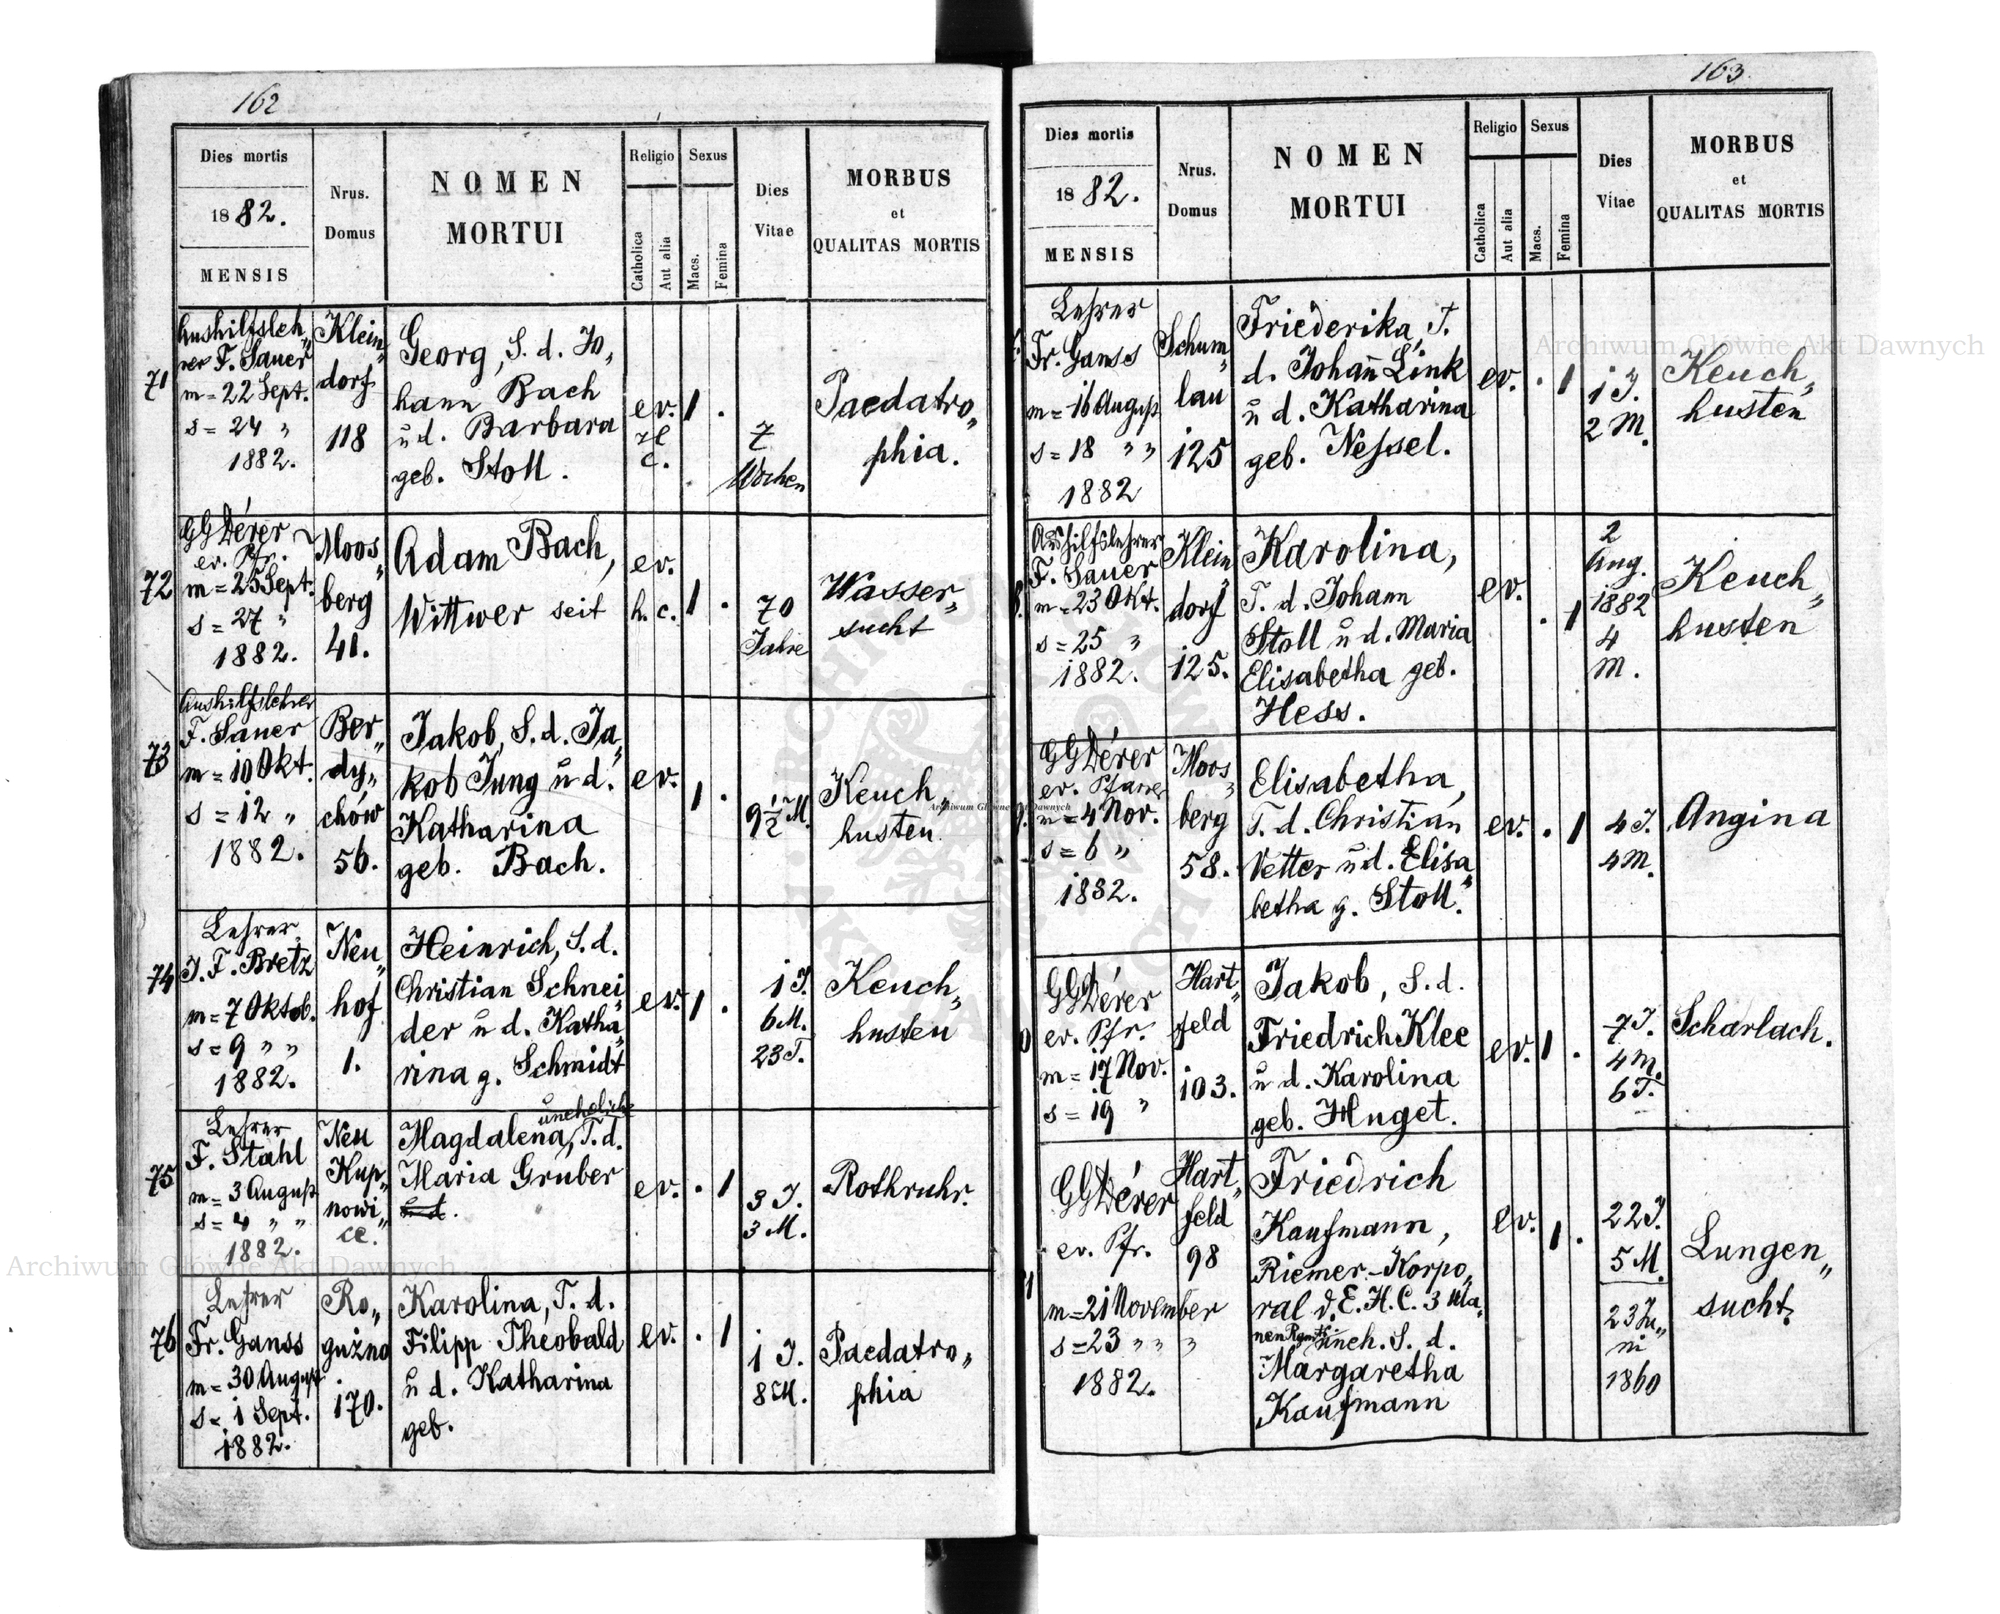 162
Dies mortis
1882.
MENSIS
Nrus.
Domus
NOMEN
MORTUI
Religio
Catholica
Aut alia
Sexus
Macs.
Femina
Dies
Vitae
MORBUS
et
QUALITAS MORTIS
71
Aushilfsleh„
rer F. Sauer
m = 22 Sept.
s = 24 „
1882.
Klein„
dorf
118
Georg, S. d. Jo„
hann Bach
u d. Barbara
geb. Stoll.
ev.
H.
C.
1 .
7
Wochen
Paedatro„
phia.
72
GGDérer
ev. Pfr.
m = 25 Sept.
s = 27 „
1882.
Moos„
berg
41.
Adam Bach,
Wittwer seit
ev.
h. c.
1 .
70
Jahre
Wasser„
sucht
73
Aushilfslehrer
F. Sauer
m = 10 Okt.
s = 12 „
1882.
Ber„
dy„
chów
56.
Jakob, S. d. Ja„
kob Jung u d.
Katharina
geb. Bach.
ev.
1 .
9 1/2 M.
Keuch„
husten
74
Lehrer
J. F. Bretz
m = 7 Oktob.
s = 9 „ „
1882.
Neu„
hof
1.
Heinrich, S. d.
Christian Schnei„
der u d. Katha„
rina g. Schmidt
ev.
1 .
1 J.
6 M.
23 T.
Keuch„
husten
75
Lehrer
F. Stahl
m = 3 August
s = 4 „ „
1882.
Neu
Kup„
nowi„
ce.
uneheliche
Magdalena, T. d.
Maria Gruber
u d.
ev.
. 1
3 J.
3 M.
Rothruhr.
76
Lehrer
Fr. Ganss
m = 30 August
s = 1 Sept.
1882.
Ro„
guźno
170.
Karolina, T. d.
Filipp Theobald
u d. Katharina
geb.
ev.
. 1
1 J.
8 M.
Paedatro„
phia
163
Dies mortis
1882.
MENSIS
Nrus.
Domus
NOMEN
MORTUI
Religio
Catholica
Aut alia
Sexus
Macs.
Femina
Dies
Vitae
MORBUS
et
QUALITAS MORTIS
Lehrer
Fr. Ganss
m = 16 August
s = 18 „ „
1882
Schum„
lau
125
Friederika, T.
d. Johan̄ Link
u d. Katharina
geb. Nessel.
ev.
. 1
1 J.
2 M.
Keuch„
husten
Aushilfslehrer
F. Sauer
m = 23 Okt.
s = 25 „
1882.
Klein„
dorf
125.
Karolina,
T. d. Johann
Stoll u d. Maria
Elisabetha geb.
Hess.
ev.
. 1
2
Aug.
1882
4
M.
Keuch„
husten
GGDérer
ev. Pfarrer
m = 4 Nov.
s = 6 „
1882.
Moos„
berg
58.
Elisabetha,
T. d. Christian
Vetter u d. Elisa„
betha g. Stoll.
ev.
. 1
4 J.
4 M.
Angina
GGDérer
ev. Pfr.
m = 17 Nov.
s = 19 „
Hart„
feld
103.
Jakob, S. d.
Friedrich Klee
u d. Karolina
geb. Huget.
ev.
1 .
7 J.
4 M.
6 T.
Scharlach.
GGDérer
ev. Pfr.
m = 21 November
s = 23 „ „ „
1882.
Hart„
feld
98
Friedrich
Kaufmann,
Riemer-Korpo„
ral d. E. H. C. 3 Ula„
nen Rgmts. uneh. S. d.
Margaretha
Kaufmann
ev.
1 .
22 J.
5 M.
23 Ju„
ni
1860
Lungen„
sucht.
Archiwum Główne Akt Dawnych
Archiwum Główne Akt Dawnych
Archiwum Główne Akt Dawnych